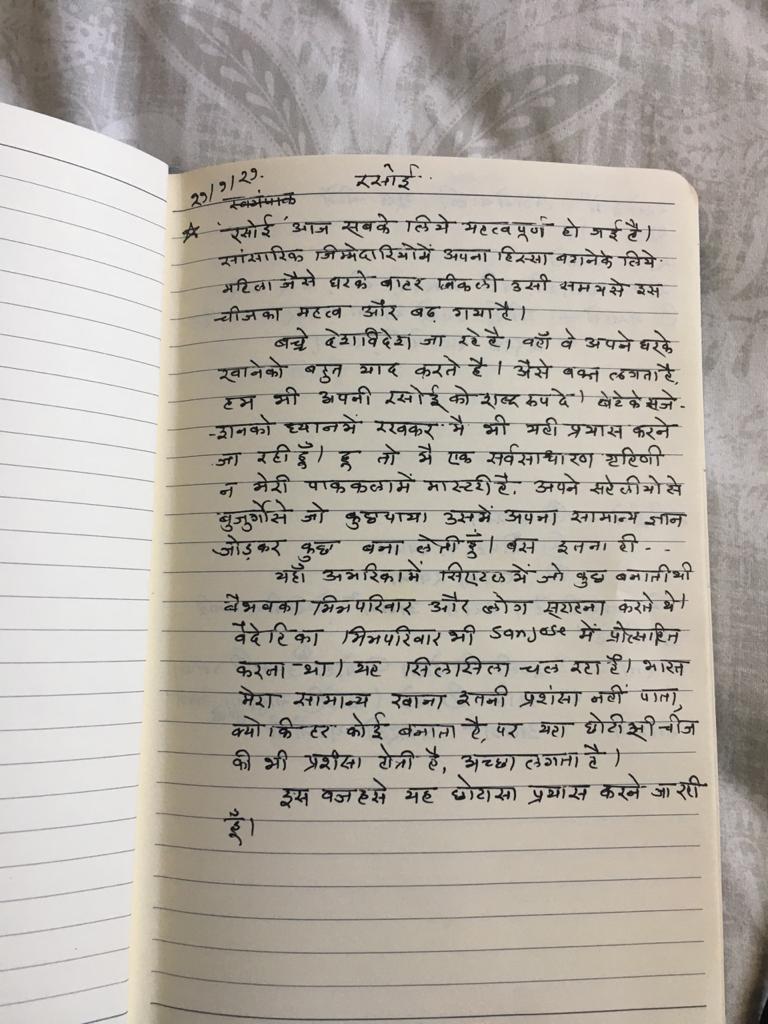 रसोई
२१/१/२१.
स्वयंपाक
☆ 'रसोई' आज सबके लिये महत्वपूर्ण हो गई है।
सांसारिक जिम्मेदारियोंमें अपना हिस्सा बटानेके लिये
महिला जैसे घरके बाहर निकली उसी समयसे इस
चीजका महत्व और बढ गया है।
बच्चे देशविदेश जा रहे है। वहाँ वे अपने घरके
खानेको बहुत याद करते है। ऐसे वक्त लगता है,
हम भी अपनी रसोई को शब्द रुप दे। बेटेके सजे-
-शनको ध्यानमें रखकर मै भी यही प्रयास करने
जा रही हूँ। हू तो मै एक सर्वसाधारण गृहिणी
न मेरी पाककलामें मास्टरी है. अपने सहेलीयोसे
बुजुर्गोसे जो कुछ पाया उसमें अपना सामान्य ज्ञान
जोड़कर कुछ बना लेती हुँ। बस इतना ही - -
यहाँ अमरिकामें सिएटलमें जो कुछ बनाती थी
वैभवका मित्रपरिवार और लोग सराहना करते थे।
वैदेहिका मित्रपरिवार भी Sanjose में प्रोत्साहित
करता था। यह सिलसिला चल रहा है। भारत
मेरा सामान्य खाना इतनी प्रशंसा नहीं पाता,
क्यो कि हर कोई बनाता है, पर यहा छोटीसी चीज
की भी प्रशंसा होती है, अच्छा लगता है।
इस वजहसे यह छोटासा प्रयास करने जा रही
हूँ।